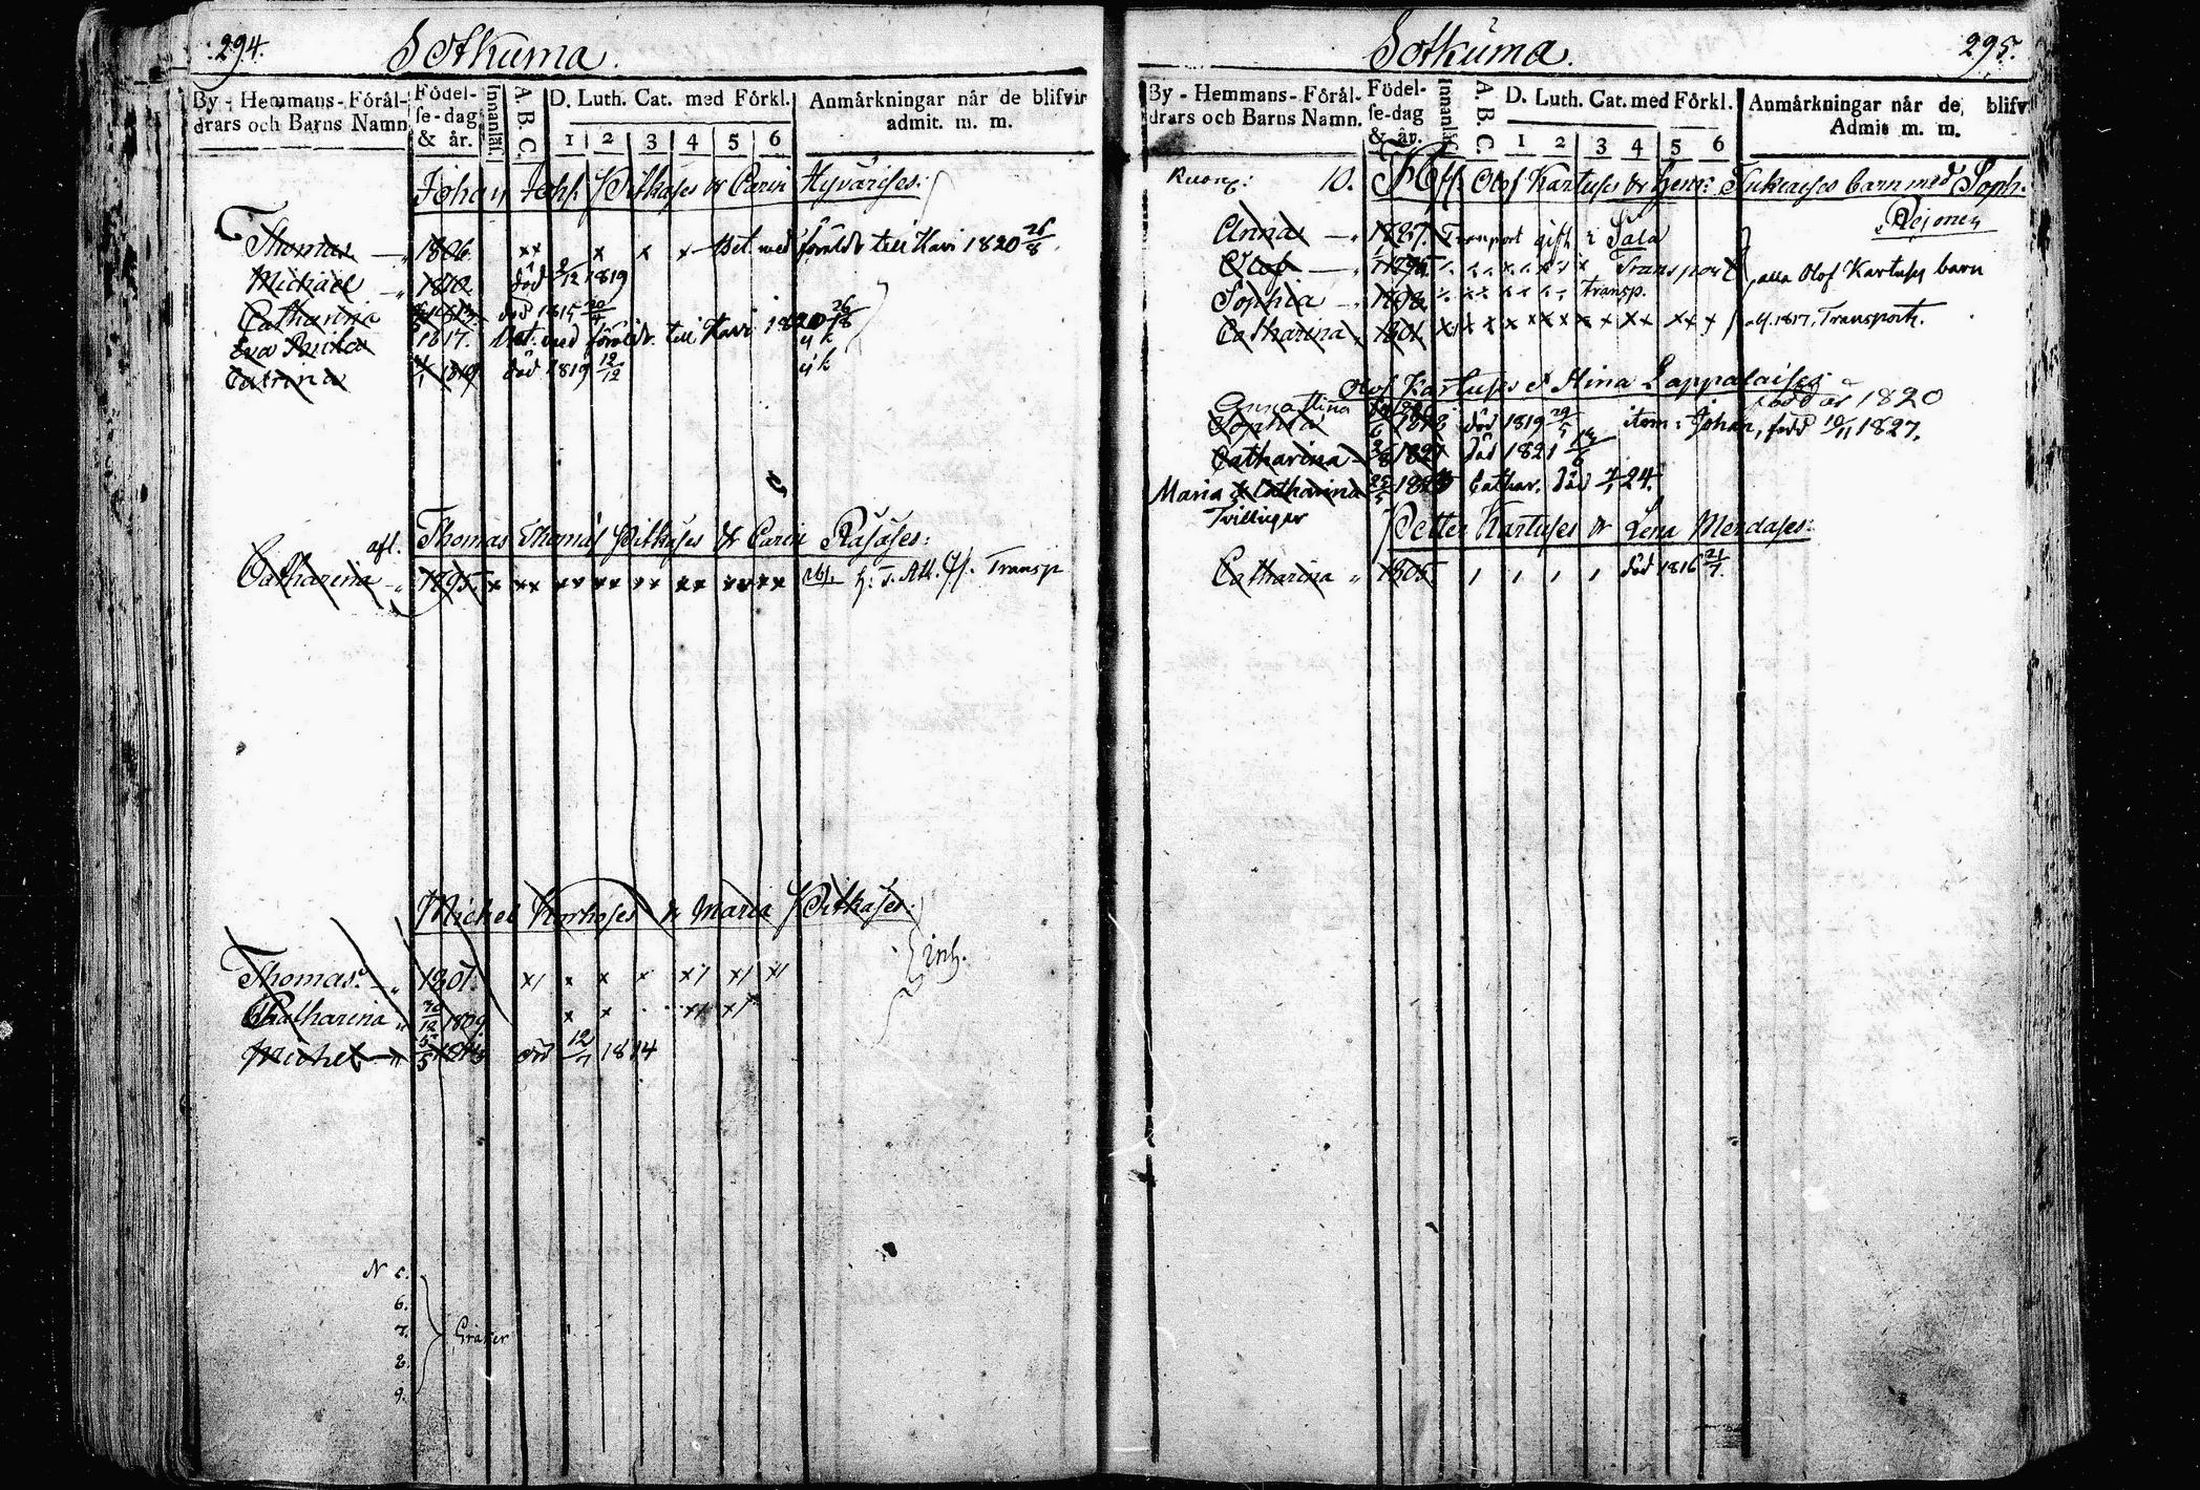 294. Sotkuma.
By - Hemmans - Förål-
drars och Barns Namn
Födel-
se-dag
& år.
Innanläs.
A. B. C.
D. Luth. Cat. med Förkl.
1 2 3 4 5 6
Anmärkningar når de blifvir
admit. m. m.
Johan Joh. Pitkäses & Carin Hyvärises:
Thomas 1806 xx x x x Bet. med föräldr. till Kavi 1820 26/8.
Michael 1812. död /12 1819
Catharina 1813. död 1815
Eva 1817. Bet. med föräldr. till Kavi 1820 26/8
Catrina 1819 död 1819 12/12
afl. Thomas Thomas Pitkäses & Carin Räsäses:
Catharina 1795. x xx xx xx xx xx xx xx Transp
Michel Korhoses & Maria Pitkäses:
Thomas. 1801. x1 x x x x1 x1 x1
Catharina 30/12 1809. x x x1 x1
Michel 5/5 1813 död 12/7 1814
N 5.
6.
7.
8.
9.
Sotkuma. 295.
By - Hemmans - Förål-
drars och Barns Namn.
Födel-
se-dag
& år.
Innanläs.
A. B. C.
D. Luth. Cat. med Förkl.
1 2 3 4 5 6
Anmärkningar når de, blifv
Admit m. m.
10. Olof Kartuses & Henr: Tukiaises barn med Soph.
Anna 1787. Transport gift i Sala
Olof 1795. Transport alla Olof Kartuses barn
Sophia 1798 transp.
Catharina 1801. x x x x x x x x x x x x x 1817. Transport.
Olof Kartuses & Stina Lappalaises
Anna Stina född år 1820
Sophia 1818 död 1819 29/5 item: Johan, född 10/11 1827.
Catharina 1821 död 1821
Maria & Catharina 25/5 1823 Cathar. död 24.
Tvillingar
Petter Kartuses & Lena Mendäses:
Catharina 1805. död 1816 21/7.